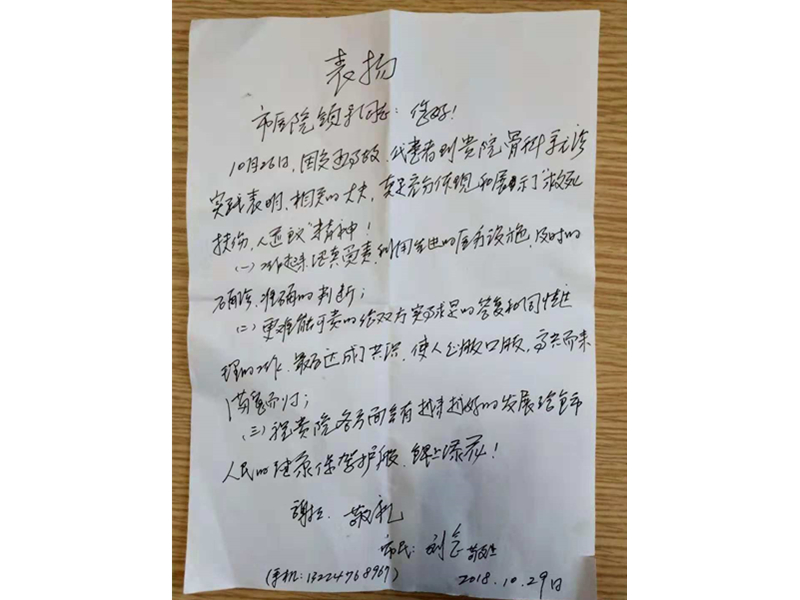 表扬
市医院领导同志：您好！
10月26日，因交通事故，代患者到贵院骨科手光诊
实践表明，相关的大夫，真是充分体现和展示了“救死
扶伤，人道主义”精神！
（一）工作起来认真负责，利用先进的医疗设施，及时的
确诊、准确的判断；
（二）更难能可贵的给双方实事求是的答复和同情达
理的工作，最后达成了共识，使人心服口服，高兴而来
满意而归；
（三）祝贵院各方面会有越来越好的发展给全市
人民的健康保驾护航、锦上添花！
谢谢 敬礼
市民：刘 敬上
（手机：13224768967） 2018.10.29日